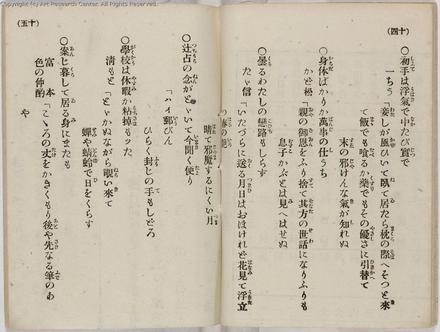 (四十)
○初手は浮氣でふたび實で
一ちう「妾しが風ひいて臥て居たら枕の際へそつと來
て飯でも喰るか藥でもその優さに引替て
末の邪けんな氣が知れぬ
○身体ばかりか萬事の仕うち
かど松「親の御恩をふり捨て其方の世話になりふりも
息子かぶとは見へはせぬ
○曇るわたしの戀路もしらず
たゞ信「いたづらに送る月日はおほけれど花見て浮立
つ春の
晴て邪魔するにくい月
(五十)
○辻占の念がとゞいて今聞く便り
「ハイ郵びん
ひらく封じの手もしどろ
○學校は休暇か粹掉もッた
清もと「とやかぬながら覗い來て
蟬や蜻蛉で日をくらす
○案じ暮して居る身にまたも
富本「こゝろの丈をかきくもり後や先なる筆のあ
色の仲酌
や
Copyright (c) Art Research Center. All Rights Reserved.